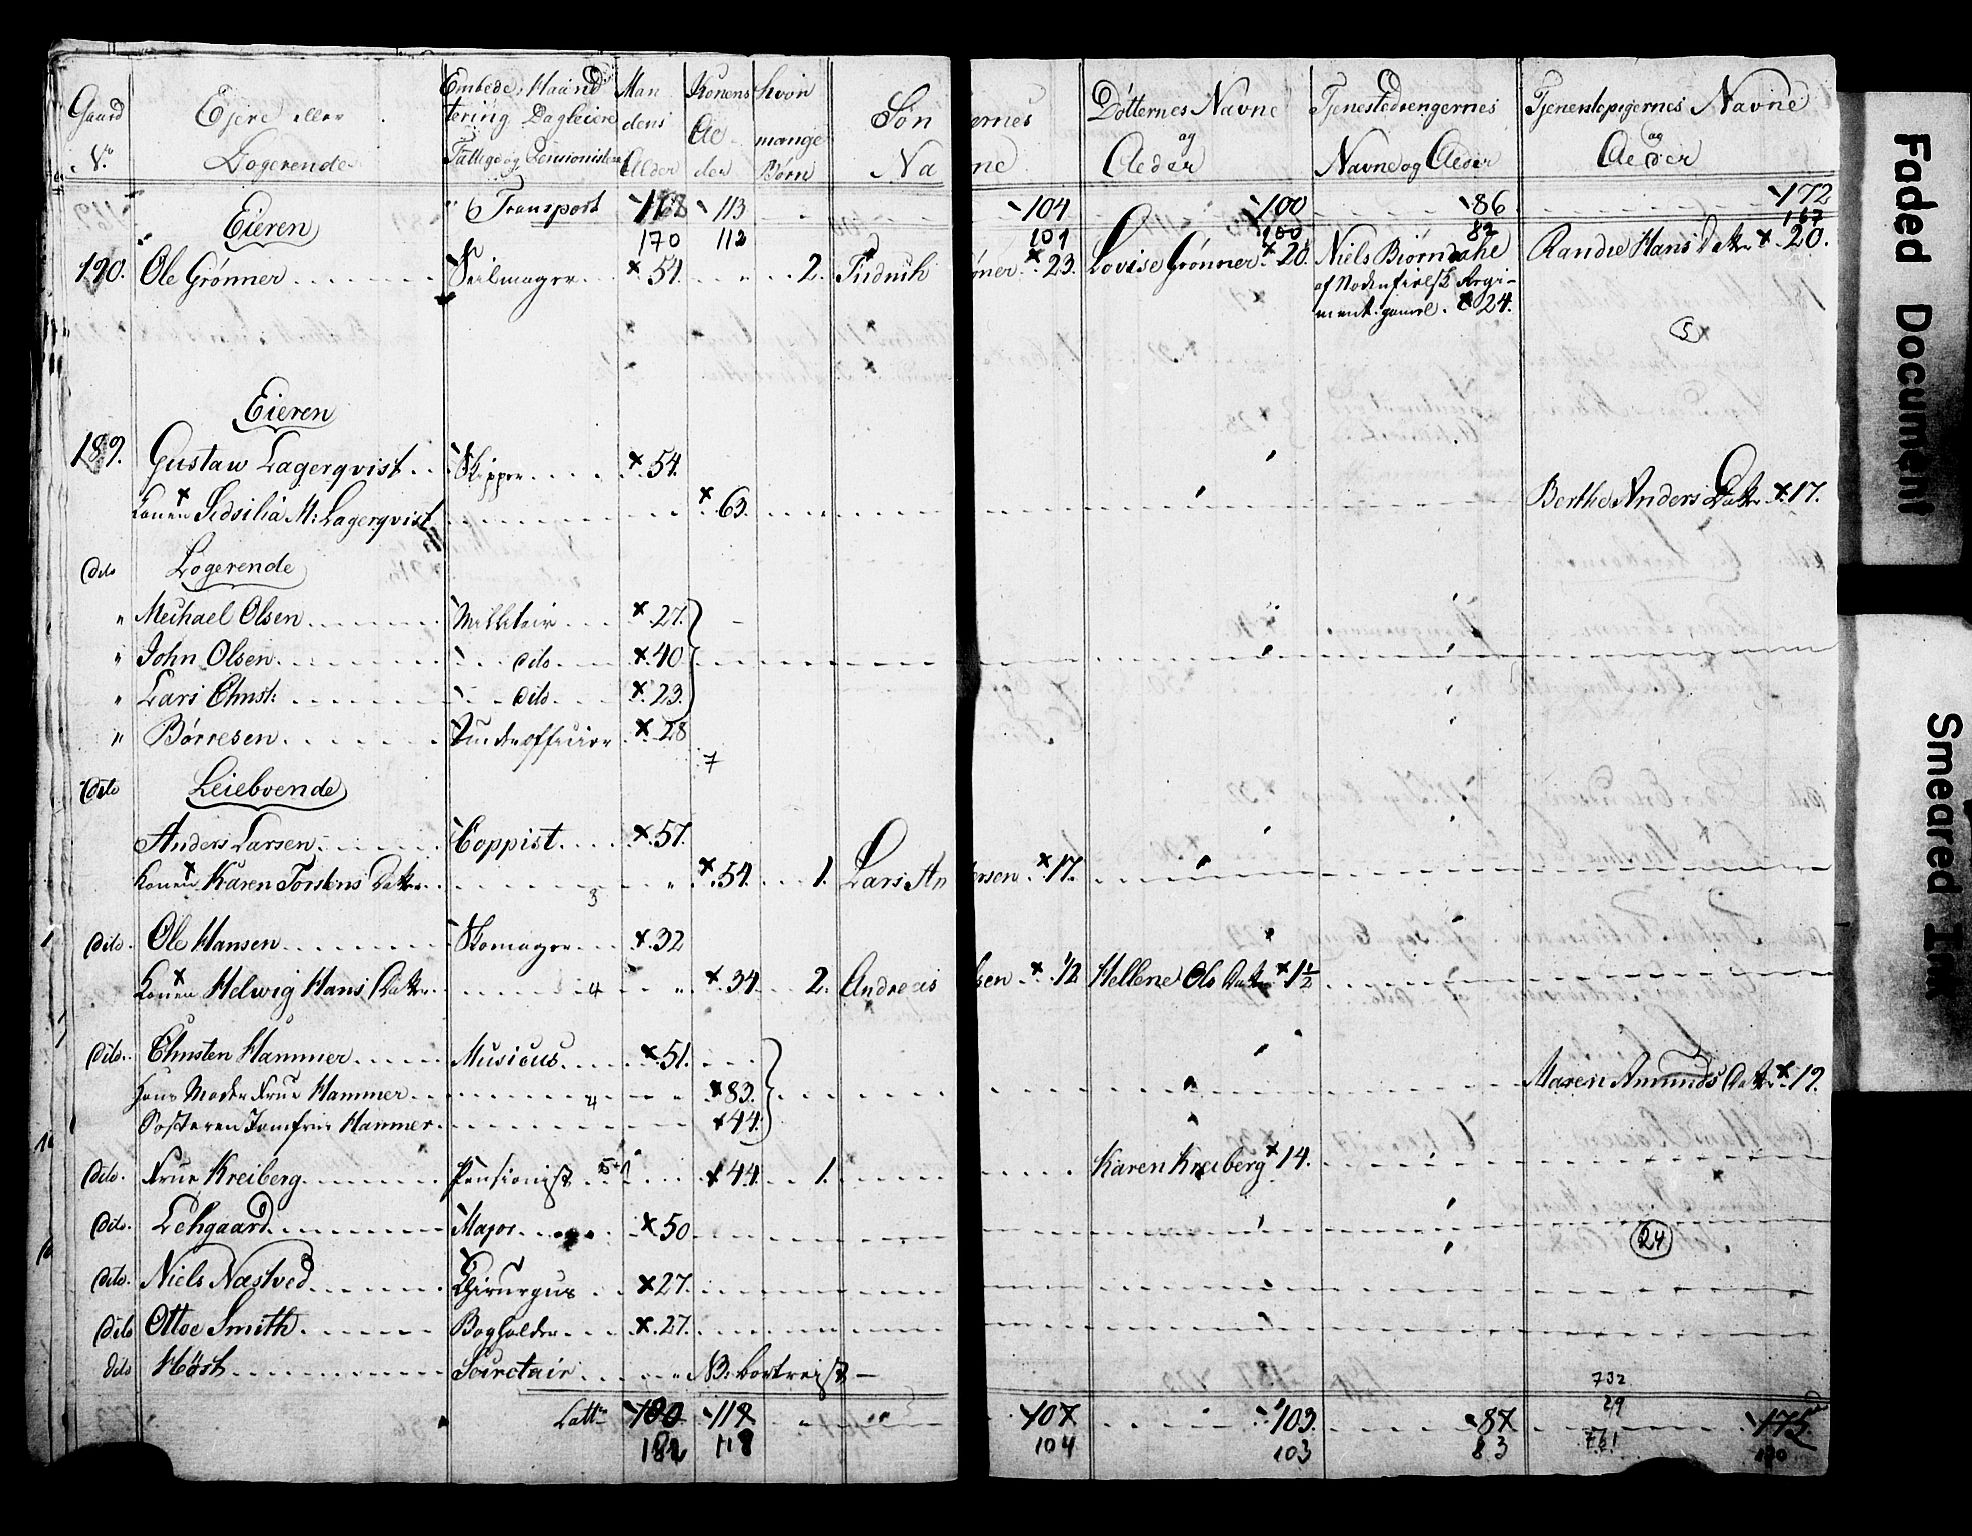 Gaard No. Ejere eller Logerende Embede, Haandtering Dagleiere Fattige og Pensionister Mandens Alder Konens Alder hvor mange Børn Søn Na ernes ne Døtternes Navne og Alder Tjenestedrengernes Navne og Alder Tjenestepigernes Navne og Alder
Eieren " 6 Transport 113 104 100 86 172
170 112 101 100 82 167
190. Ole Grønner Seilmager x 51. 2. x 23. Lovise Grønner x 20. Niels Biørndahl Randie Hans Datter x 20.
x 24.
5
Eieren
189. Gustaw Lagerqvist Skipper x 54.
Konen Sidsilia M: Lagerqvist x 63. Berthe Anders Datter x 17.
dito Logerende
" Michael Olsen Militair x 27.
" John Olsen dito x 40
" Lars Christ: dito x 23.
" Børresen Underofficier x 28
7
dito Leieboende
Anders Larsen Coppist x 57.
Konen Karen Torstens Datter 3 " x 54. 1. Lars An ersen x 17.
dito. Ole Hansen Skomager x 32
Konen Helwig Hans Datter 4 " x 34. 2. Andreas x 12 Hellene Ols Datter x 1½
dito. Christen Hammer Musicus x 51.
Hans Moder Frue Hammer 4 x 83. Maren Amunds Datter x 19.
Søsteren Jomfrue Hammer x 44.
dito. Frue Kreiberg Pensionist x 44. 1. Karen Kreiberg x 14.
dito. Lehgaard Major x 50
24
dito. Niels Næstved Chirurgus x 27.
dito Ottoe Smith Bogholder x 27.
dito Høst Secretair NB: bortreist
732
Latt. 180 119 107 103. 87 29 175.
182 118 104 103 83 761 180
Faded Document
Smeared Ink